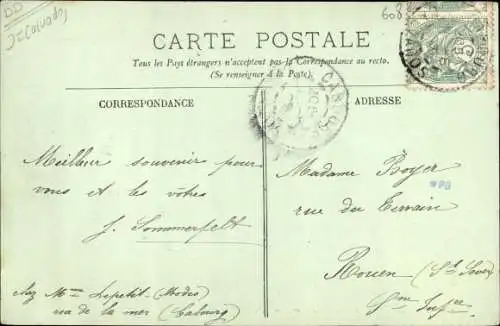 DD
J=Calvados
608
CARTE POSTALE
Tous les Pays étrangers n'acceptent pas la Correspondance au recto.
(Se renseigner à la Poste).
CORRESPONDANCE
ADRESSE
CABOURG
Meilleur souvenir pour
vous et les vôtres
J. Sommerfelt
chez Mme Lepetit (Modes)
rue de la mer (Cabourg)
Madame Boyer
rue du Terrain
Rouen (St Sever)
Sme Infre